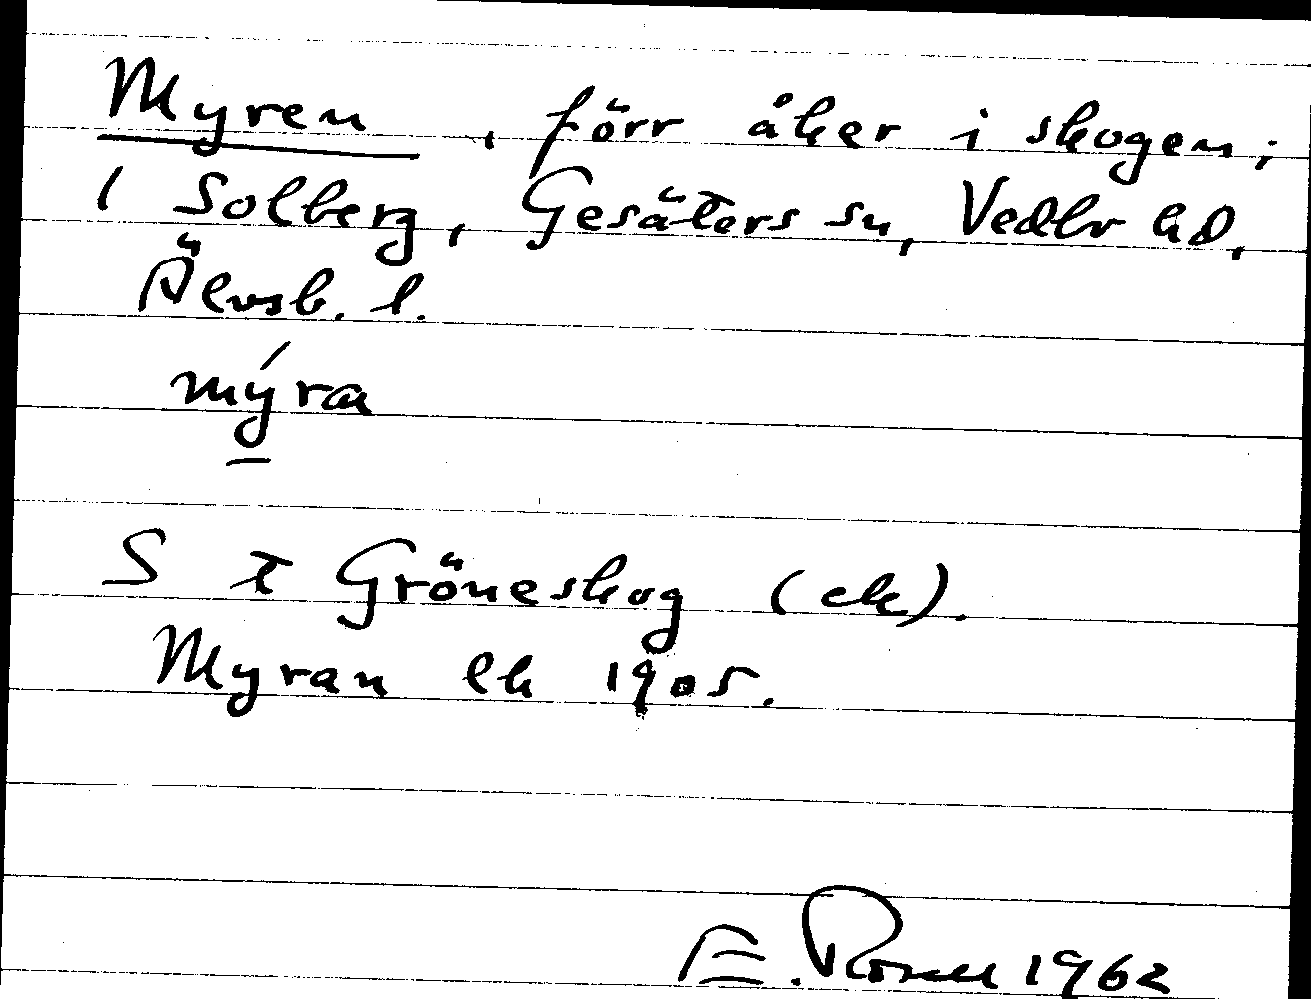 Myren, förr åker i skogen;
1 Solberg, Gesäters sn, Vedbo hd,
Älvsb. l.
mýra
S t Gröneskog (ek).
Myran ek 1905.
E. Rosell 1962